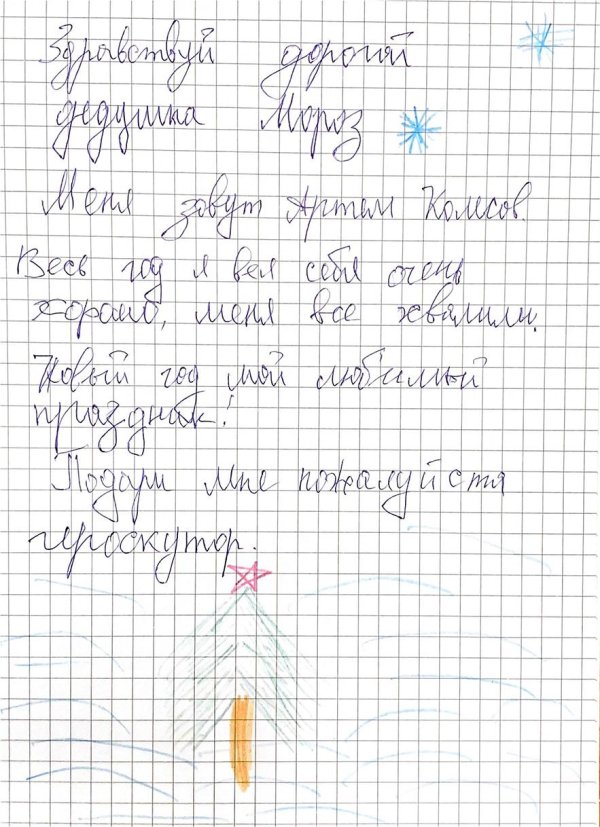 Здравствуй дорогой
дедушка Мороз
Меня зовут Артем Колесов.
Весь год я вел себя очень
хорошо, меня все хвалили.
Новый год мой любимый
праздник!
Подари мне пожалуйста
героскутор.